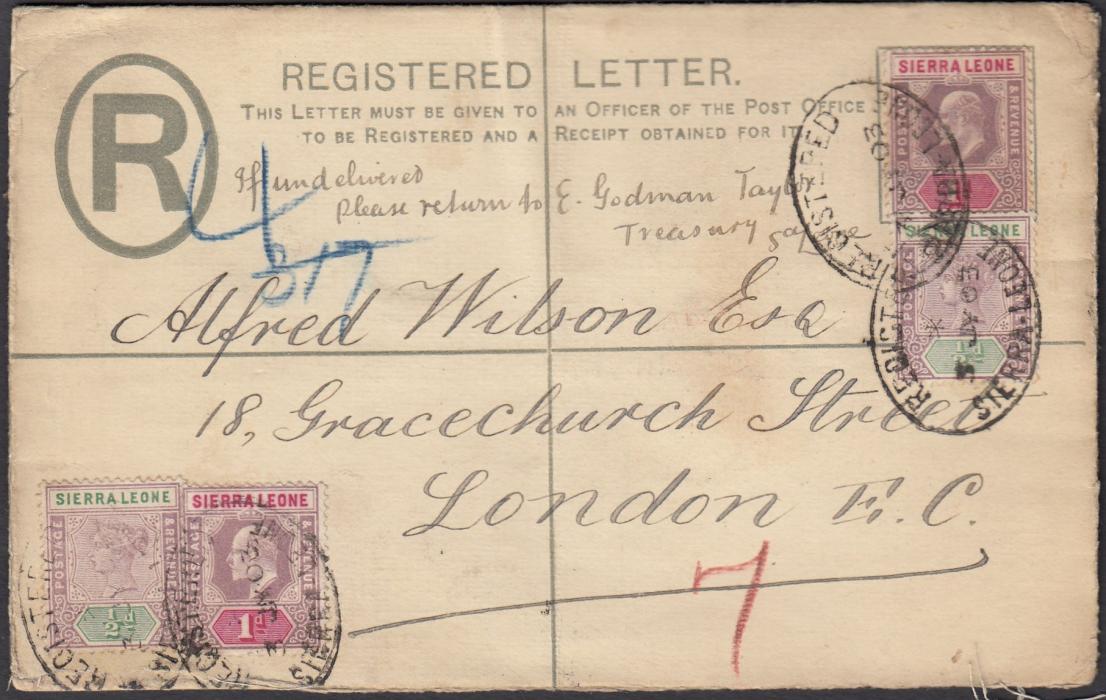 R
REGISTERED LETTER.
THIS LETTER MUST BE GIVEN TO AN OFFICER OF THE POST OFFICE
TO BE REGISTERED AND A RECEIPT OBTAINED FOR IT.
If undelivered
please return to E. Godman Taylor
Treasury
Alfred Wilson Esq
18, Gracechurch Street
London E.C.
7
SIERRA LEONE
POSTAGE & REVENUE
SIERRA LEONE
POSTAGE
½d
REGISTERED
SIERRA LEONE
SIERRA LEONE
POSTAGE & REVENUE
½d
SIERRA LEONE
POSTAGE & REVENUE
1d
REGISTERED